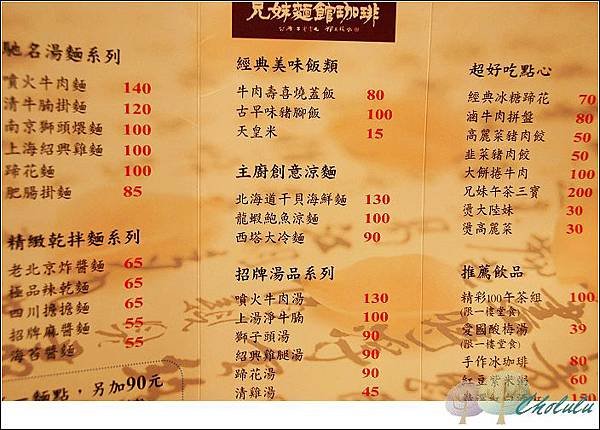 兄妹麵館珈琲
馳名湯麵系列
噴火牛肉麵 140
清牛腩掛麵 120
南京獅頭煨麵 100
上海紹興雞麵 100
蹄花麵 100
肥腸掛麵 85
精緻乾拌麵系列
老北京炸醬麵 65
極品辣乾麵 65
四川擔擔麵 55
招牌麻醬麵 55
海苔醬麵 55
麵點，另加90元
經典美味飯類
牛肉壽喜燒蓋飯 80
古早味豬腳飯 100
天皇米 15
主廚創意涼麵
北海道干貝海鮮麵 130
龍蝦鮑魚涼麵 100
西塔大冷麵 90
招牌湯品系列
噴火牛肉湯 130
上湯淨牛腩 100
獅子頭湯 90
紹興雞腿湯 90
蹄花湯 90
清雞湯 45
超好吃點心
經典冰糖蹄花 70
滷牛肉拼盤 80
高麗菜豬肉餃 50
韭菜豬肉餃 50
大餅捲牛肉 100
兄妹午茶三寶 200
燙大陸妹 30
燙高麗菜 30
推薦飲品
精彩100午茶組 100
(限一樓堂食)
愛國酸梅湯 39
(限一樓堂食)
手作冰珈琲 80
紅豆紫米粥 60
150
Cholulu